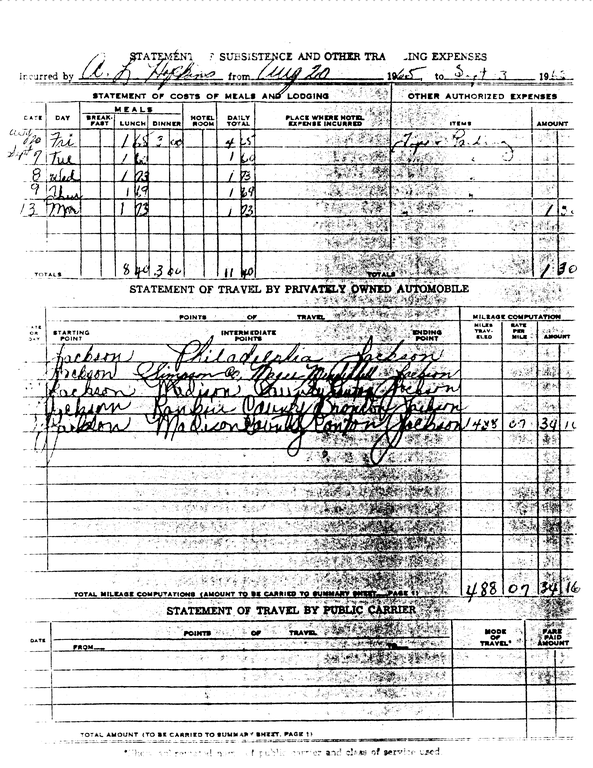 STATEMENT OF SUBSISTENCE AND OTHER TRA ING EXPENSES
incurred by A. L. Hopkins from Aug 20 1965 to Sept 3 196
STATEMENT OF COSTS OF MEALS AND LODGING OTHER AUTHORIZED EXPENSES
DATE DAY MEALS BREAK-FAST LUNCH DINNER HOTEL ROOM DAILY TOTAL PLACE WHERE HOTEL EXPENSE INCURRED ITEMS AMOUNT
Aug 20 Fri 1 65 3 00 4 65
Sept 7 Tue 1 60 1 60
8 Wed 1 73 1 73 "
9 Thur 1 69 1 69 "
13 Mon 1 73 1 73 " " 1 30
TOTALS 8 40 3 00 11 40 TOTALS 1 30
STATEMENT OF TRAVEL BY PRIVATELY OWNED AUTOMOBILE
POINTS OF TRAVEL MILEAGE COMPUTATION
DATE OR DAY STARTING POINT INTERMEDIATE POINTS ENDING POINT MILES TRAV-ELED RATE PER MILE AMOUNT
Jackson Philadelphia Jackson
Jackson Simpson Co. Magee Mendenhall Jackson
Jackson Madison County Canton Jackson
Jackson Rankin County Brandon Jackson
Jackson Madison County Canton Jackson 488 07 34 16
TOTAL MILEAGE COMPUTATIONS (AMOUNT TO BE CARRIED TO SUMMARY SHEET, PAGE 1) 488 07 34 16
STATEMENT OF TRAVEL BY PUBLIC CARRIER
DATE POINTS OF TRAVEL MODE OF TRAVEL* FARE PAID AMOUNT
FROM TO
TOTAL AMOUNT (TO BE CARRIED TO SUMMARY SHEET, PAGE 1)
of public carrier and class of service used.